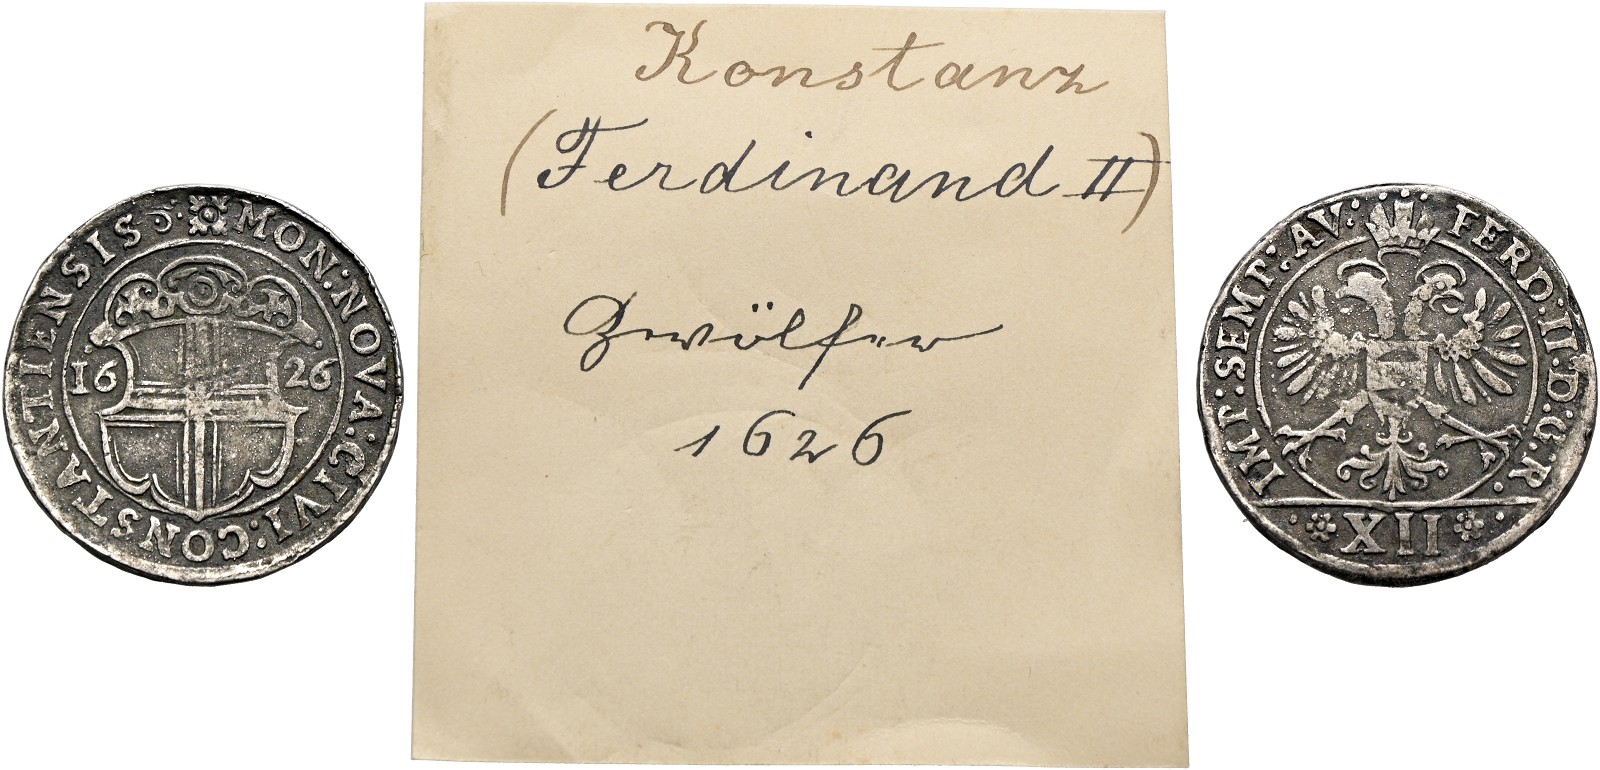 MON:NOVA:CIVI:CONSTANTIENSIS
16 26
Konstanz
(Ferdinand II)
Zwölfer
1626
FERD:II:D:G:R.
IMP:SEMP:AV:
XII